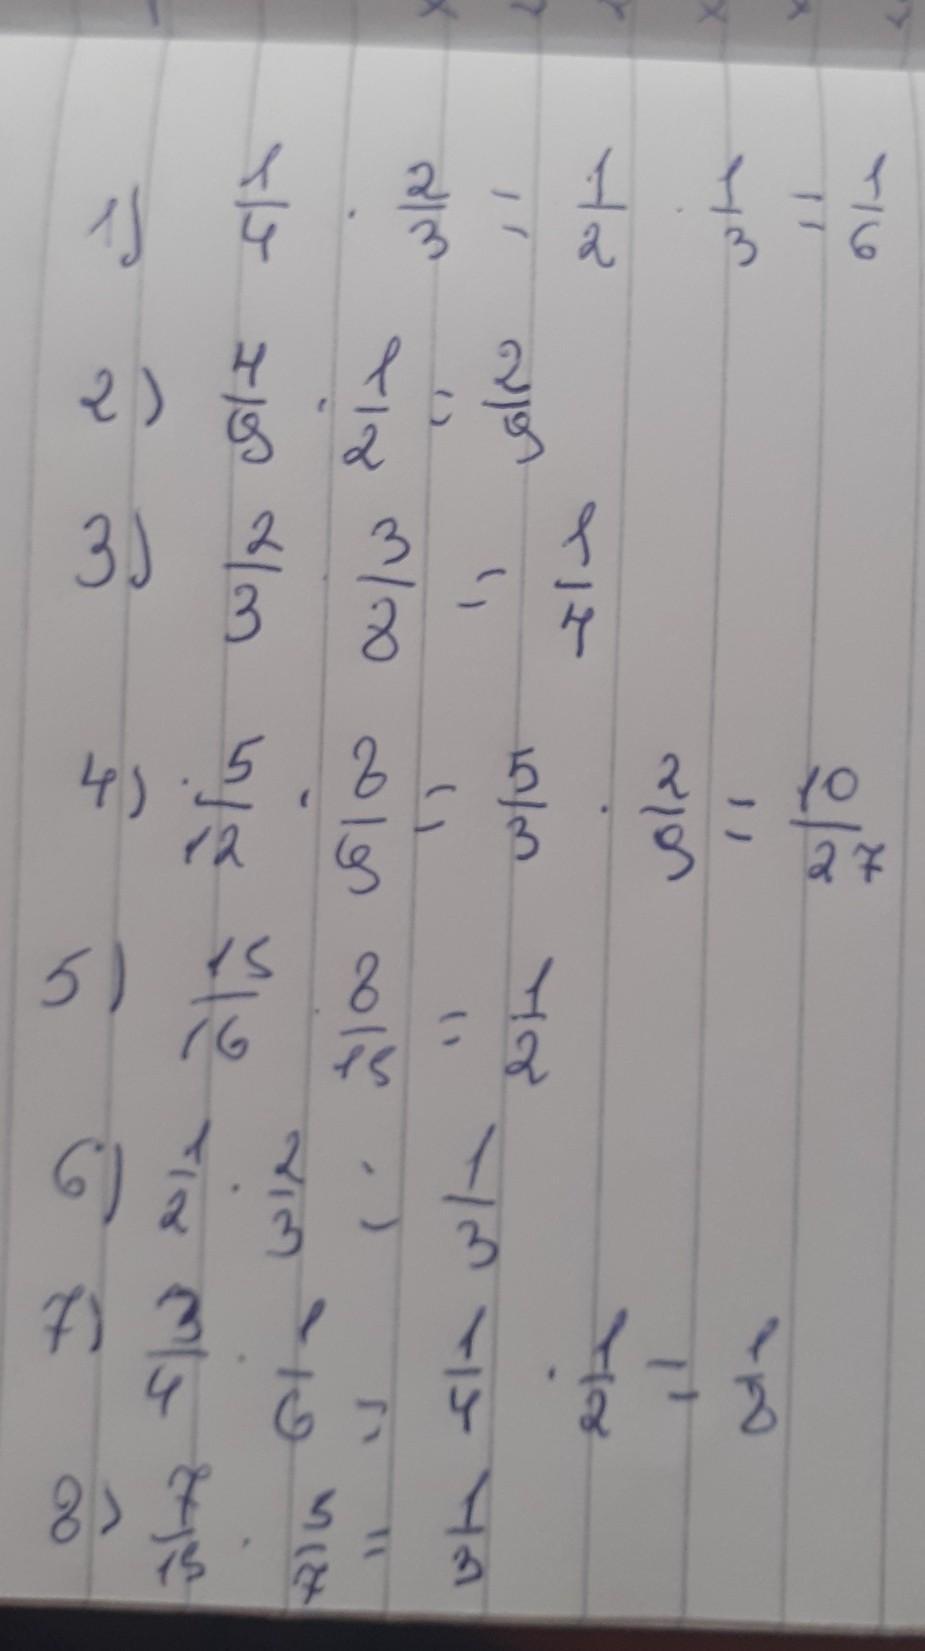 1) 1/4 · 2/3 = 1/2 · 1/3 = 1/6
2) 4/9 · 1/2 = 2/9
3) 2/3 · 3/8 = 1/4
4) 5/12 · 8/9 = 5/3 · 2/9 = 10/27
5) 15/16 · 8/15 = 1/2
6) 1/2 · 2/3 = 1/3
7) 3/4 · 1/6 = 1/4 · 1/2 = 1/8
8) 7/15 · 5/7 = 1/3